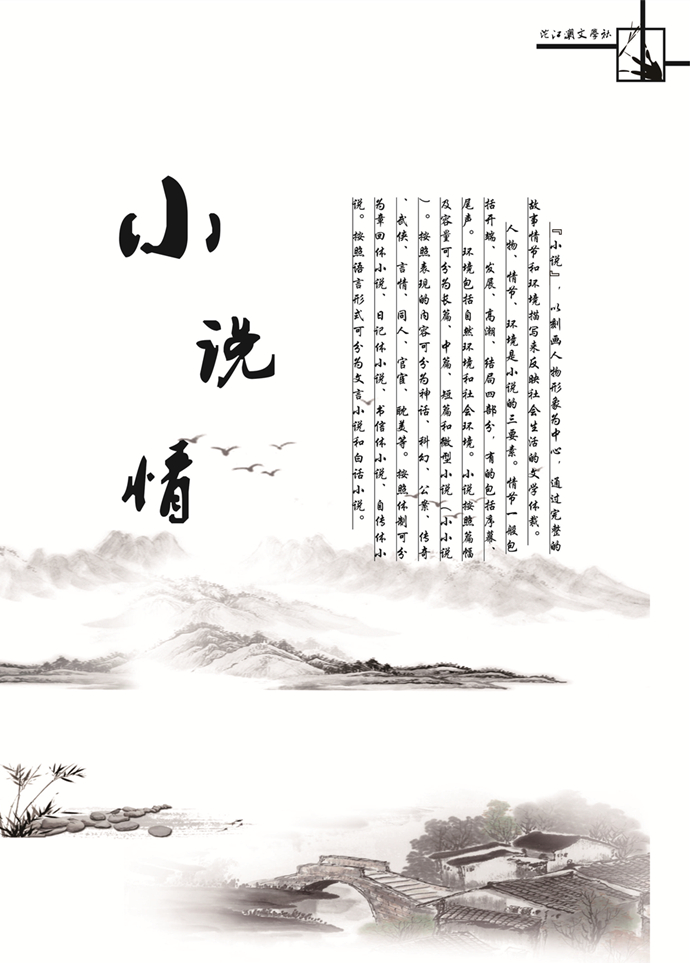 沱江潮文学社
小说情
『小说』，以刻画人物形象为中心，通过完整的
故事情节和环境描写来反映社会生活的文学体裁。
人物、情节、环境是小说的三要素。情节一般包
括开端、发展、高潮、结局四部分，有的包括序幕、
尾声。环境包括自然环境和社会环境。小说按照篇幅
及容量可分为长篇、中篇、短篇和微型小说（小小说
）。按照表现的内容可分为神话、科幻、公案、传奇
、武侠、言情、同人、官宦、耽美等。按照体制可分
为章回体小说、日记体小说、书信体小说、自传体小
说。按照语言形式可分为文言小说和白话小说。